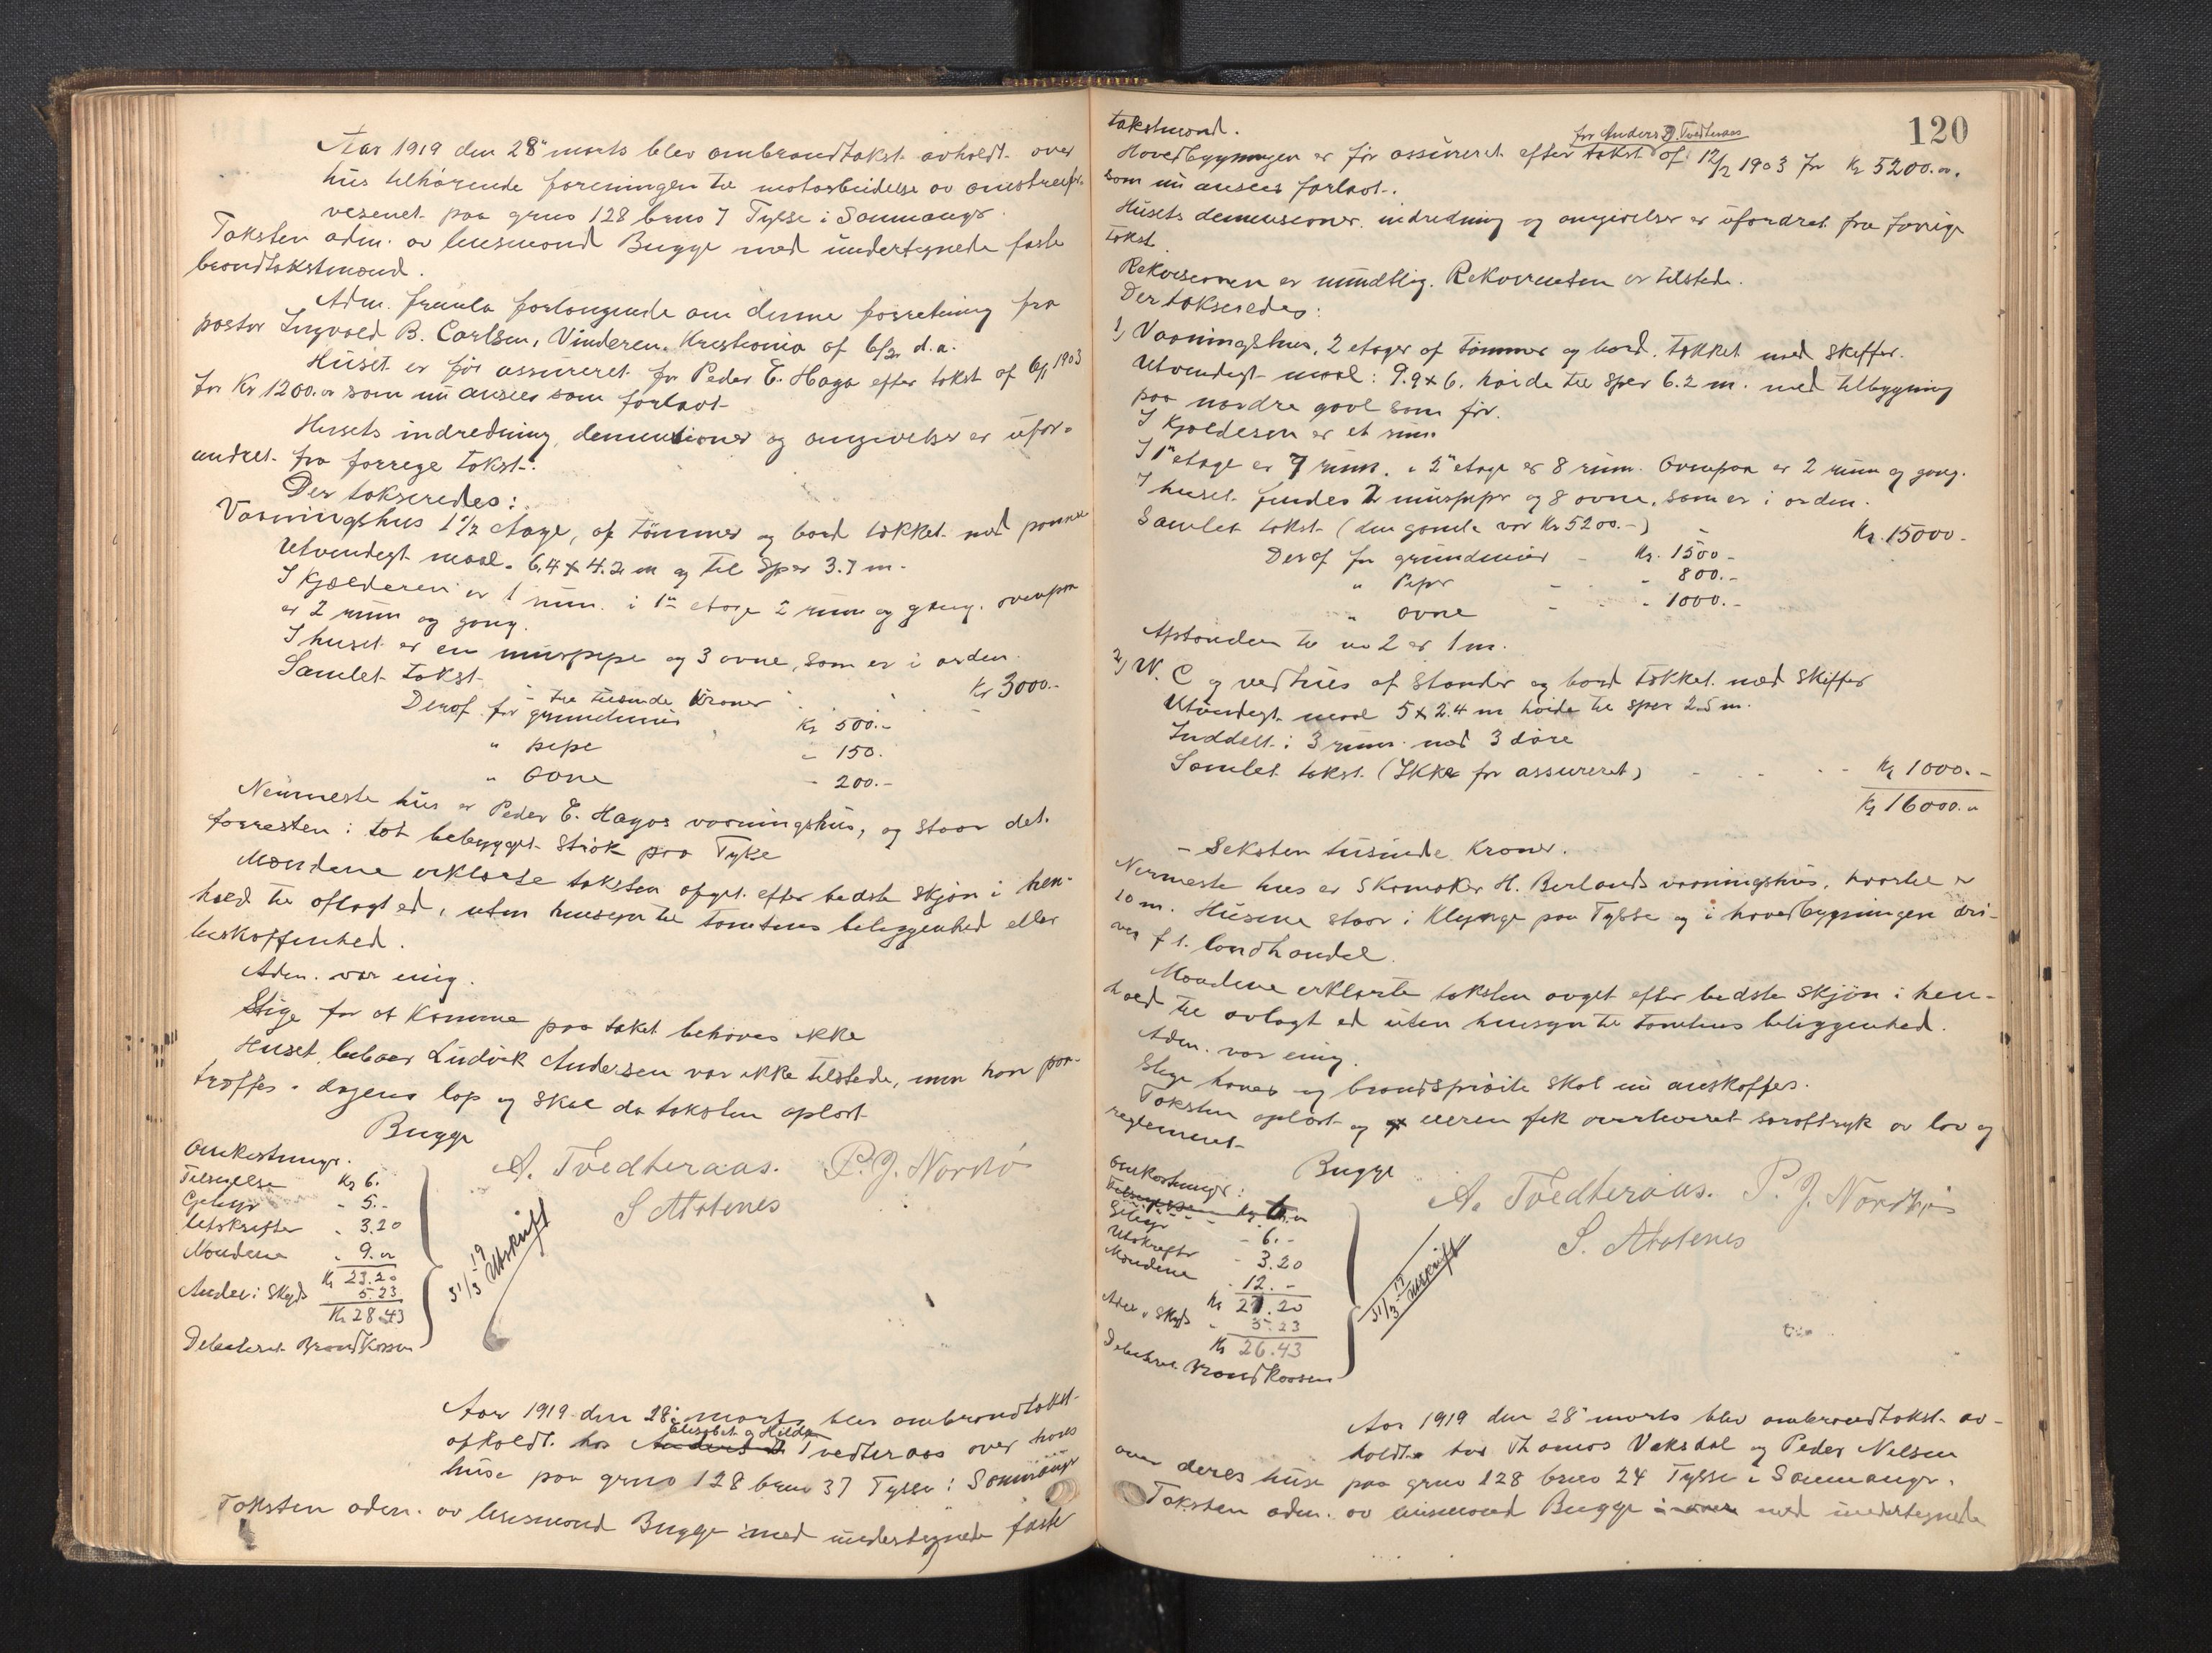 Aar 1919 den 28' marts blev ombrandtakst avholdt over
hus tilhørende foreningen til motarbeidelse av omstreifer-
vesenet paa grno 128 brno 7 Tysse i Samnanger.
Taksten adm. av lensmand Bugge med undertegnede faste
brandtakstmænd.
Adm. fremla forlangende om denne forretning fra
pastor Ingvald B. Carlsen, Vinderen, Kristiania af 6/2 d.a.
Huset er før assureret for Peder E. Haga efter takst af 6/1 1903
for Kr 1200.00 som nu ansees som for lavt.
Husets indredning, dementioner og angivelser er ufor-
andret fra forrige takst.
Der takseredes:
Vaaningshus 1 1/2 etage, af tømmer og bord tækket med panne
Utvendigt maal. 6.4 x 4.2 m og til sper 3.7 m.
I Kjælderen er 1 rum. i 1ste etage 2 rum og gang. ovenpaa
er 2 rum og gang.
I huset er en murpipe og 3 ovne, som er i orden.
Samlet takst Kr 3000.-
- tre tusinde Kroner
Deraf for grundmur Kr 500.-
" pipe - 150.
" ovne - 200.-
Nærmeste hus er Peder E. Hagas vaaningshus, og staar det
forresten i tæt bebygget strøk paa Tysse
Mændene erklærte taksten afgit efter bedste skjøn i hen-
hold til aflagt ed, uten hensyn til tomtens beliggenhed eller
beskaffenhed.
Adm. var enig.
Stige for at komme paa taket behøves ikke
Huset beboer Ludvik Andersen var ikke tilstede, men han paa-
træffes i dagens løp og skal da taksten oplæst
Bugge
A. Tvedteraas. P. J. Nordbø
S Aldenes
Omkostninger.
Tilsigelse Kr 6.
Gebyr - 5.-
Utskrifter - 3.20
Mændene - 9.00
Kr 23.20
Andel i Skyds 5.23
Kr 28.43
Debiteret Brandkassen
31/3 19 Utskrift
Aar 1919 den 28' marts blev ombrandtakst
afholdt hos Anders D. Elisabet og Hilda Tvedteraas over hans
huse paa grno 128 brno 37 Tysse i Samnanger
Taksten adm. av lensmand Bugge med undertegnede faste
120
takstmænd.
for Anders D. Tvedteraas
Hovedbygningen er før assureret efter takst af 12/2 1903 for Kr 5200.00.
som nu ansees for lavt.
Husets demensioner, indredning og angivelser er uforandret fra forrige
takst.
Rekvisionen er mundtlig. Rekvirenten er tilstede.
Der takseredes:
1) Vaaningshus, 2 etager af tømmer og bord, tækket med skiffer.
Utvendigt maal: 9.9 x 6. høide til sper 6.2 m. med tilbygning
paa nordre gavl som før.
I Kjælderen er et rum.
I 1ste etage er 7 rum. i 2den etage er 8 rum. Ovenpaa er 2 rum og gang.
I huset findes 2 murpiper og 8 ovne, som er i orden.
Samlet takst (den gamle var Kr 5200.-) - Kr. 15000.-
Deraf for grundmur - Kr. 1500.-
" Piper - - 800.-
" ovne - - 1000.-
Afstanden til no 2 er 1 m.
2) W. C og vedhus af stander og bord tækket med skiffer
Utvendigt maal 5 x 2.4 m høide til sper 2.5 m.
Inddelt i 3 rum med 3 døre
Samlet takst. (Ikke før assureret) Kr 1000.-
Kr 16000.00
- Seksten tusinde Kroner.
Nærmeste hus er skomaker H. Berlands vaaningshus, hvortil er
10 m. Husene staar i klynge paa Tysse og i hovedbygningen dri-
ves f. t. landhandel.
Mændene erklærte taksten avgit efter bedste skjøn i hen-
hold til avlagt ed uten hensyn til tomtens beliggenhed.
Adm. var enig.
Stige haves og brandsprøite skal nu anskaffes.
Taksten oplæst og eieren fik overleveret særaftryk av lov og
reglement
Bugge
A. Tvedteraas. P. J. Nordbø
S. Aldenes
Omkostninger:
Tilsigelse Kr 6.00
Gebyr - 6.-
Utskrifter - 3.20
Mændene - 12.-
Kr 21.20
Andel i Skyds - 5.23
Kr 26.43
Debiteret Brandkassen
31/3 19 Utskrift
Aar 1919 den 28' marts blev ombrandtakst av-
holdt hos Thomas Vaksdal og Peder Nilsen
over deres huse paa grno 128 brno 24 Tysse i Samnanger.
Taksten adm. av lensmand Bugge med undertegnede